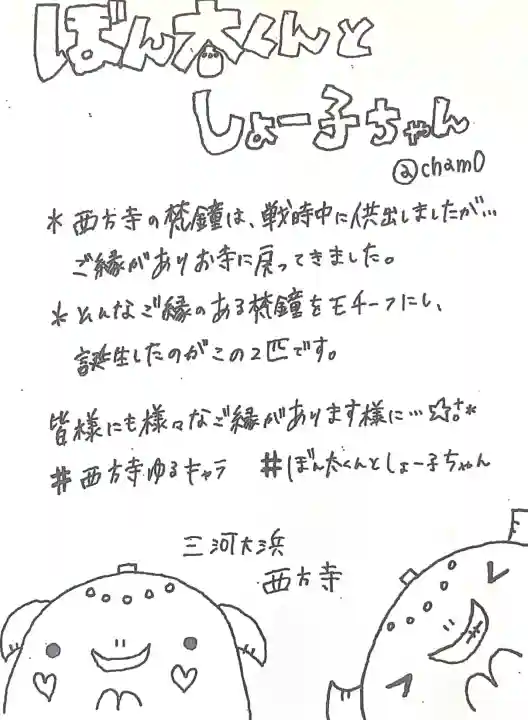 ぼん太くんと
しょー子ちゃん
@cham0
*西方寺の梵鐘は、戦時中に供出しましたが…
ご縁がありお寺に戻ってきました。
*そんなご縁のある梵鐘をモチーフにし、
誕生したのがこの2匹です。
皆様にも様々なご縁があります様に…☆
#西方寺ゆるキャラ #ぼん太くんとしょー子ちゃん
三河大浜
西方寺